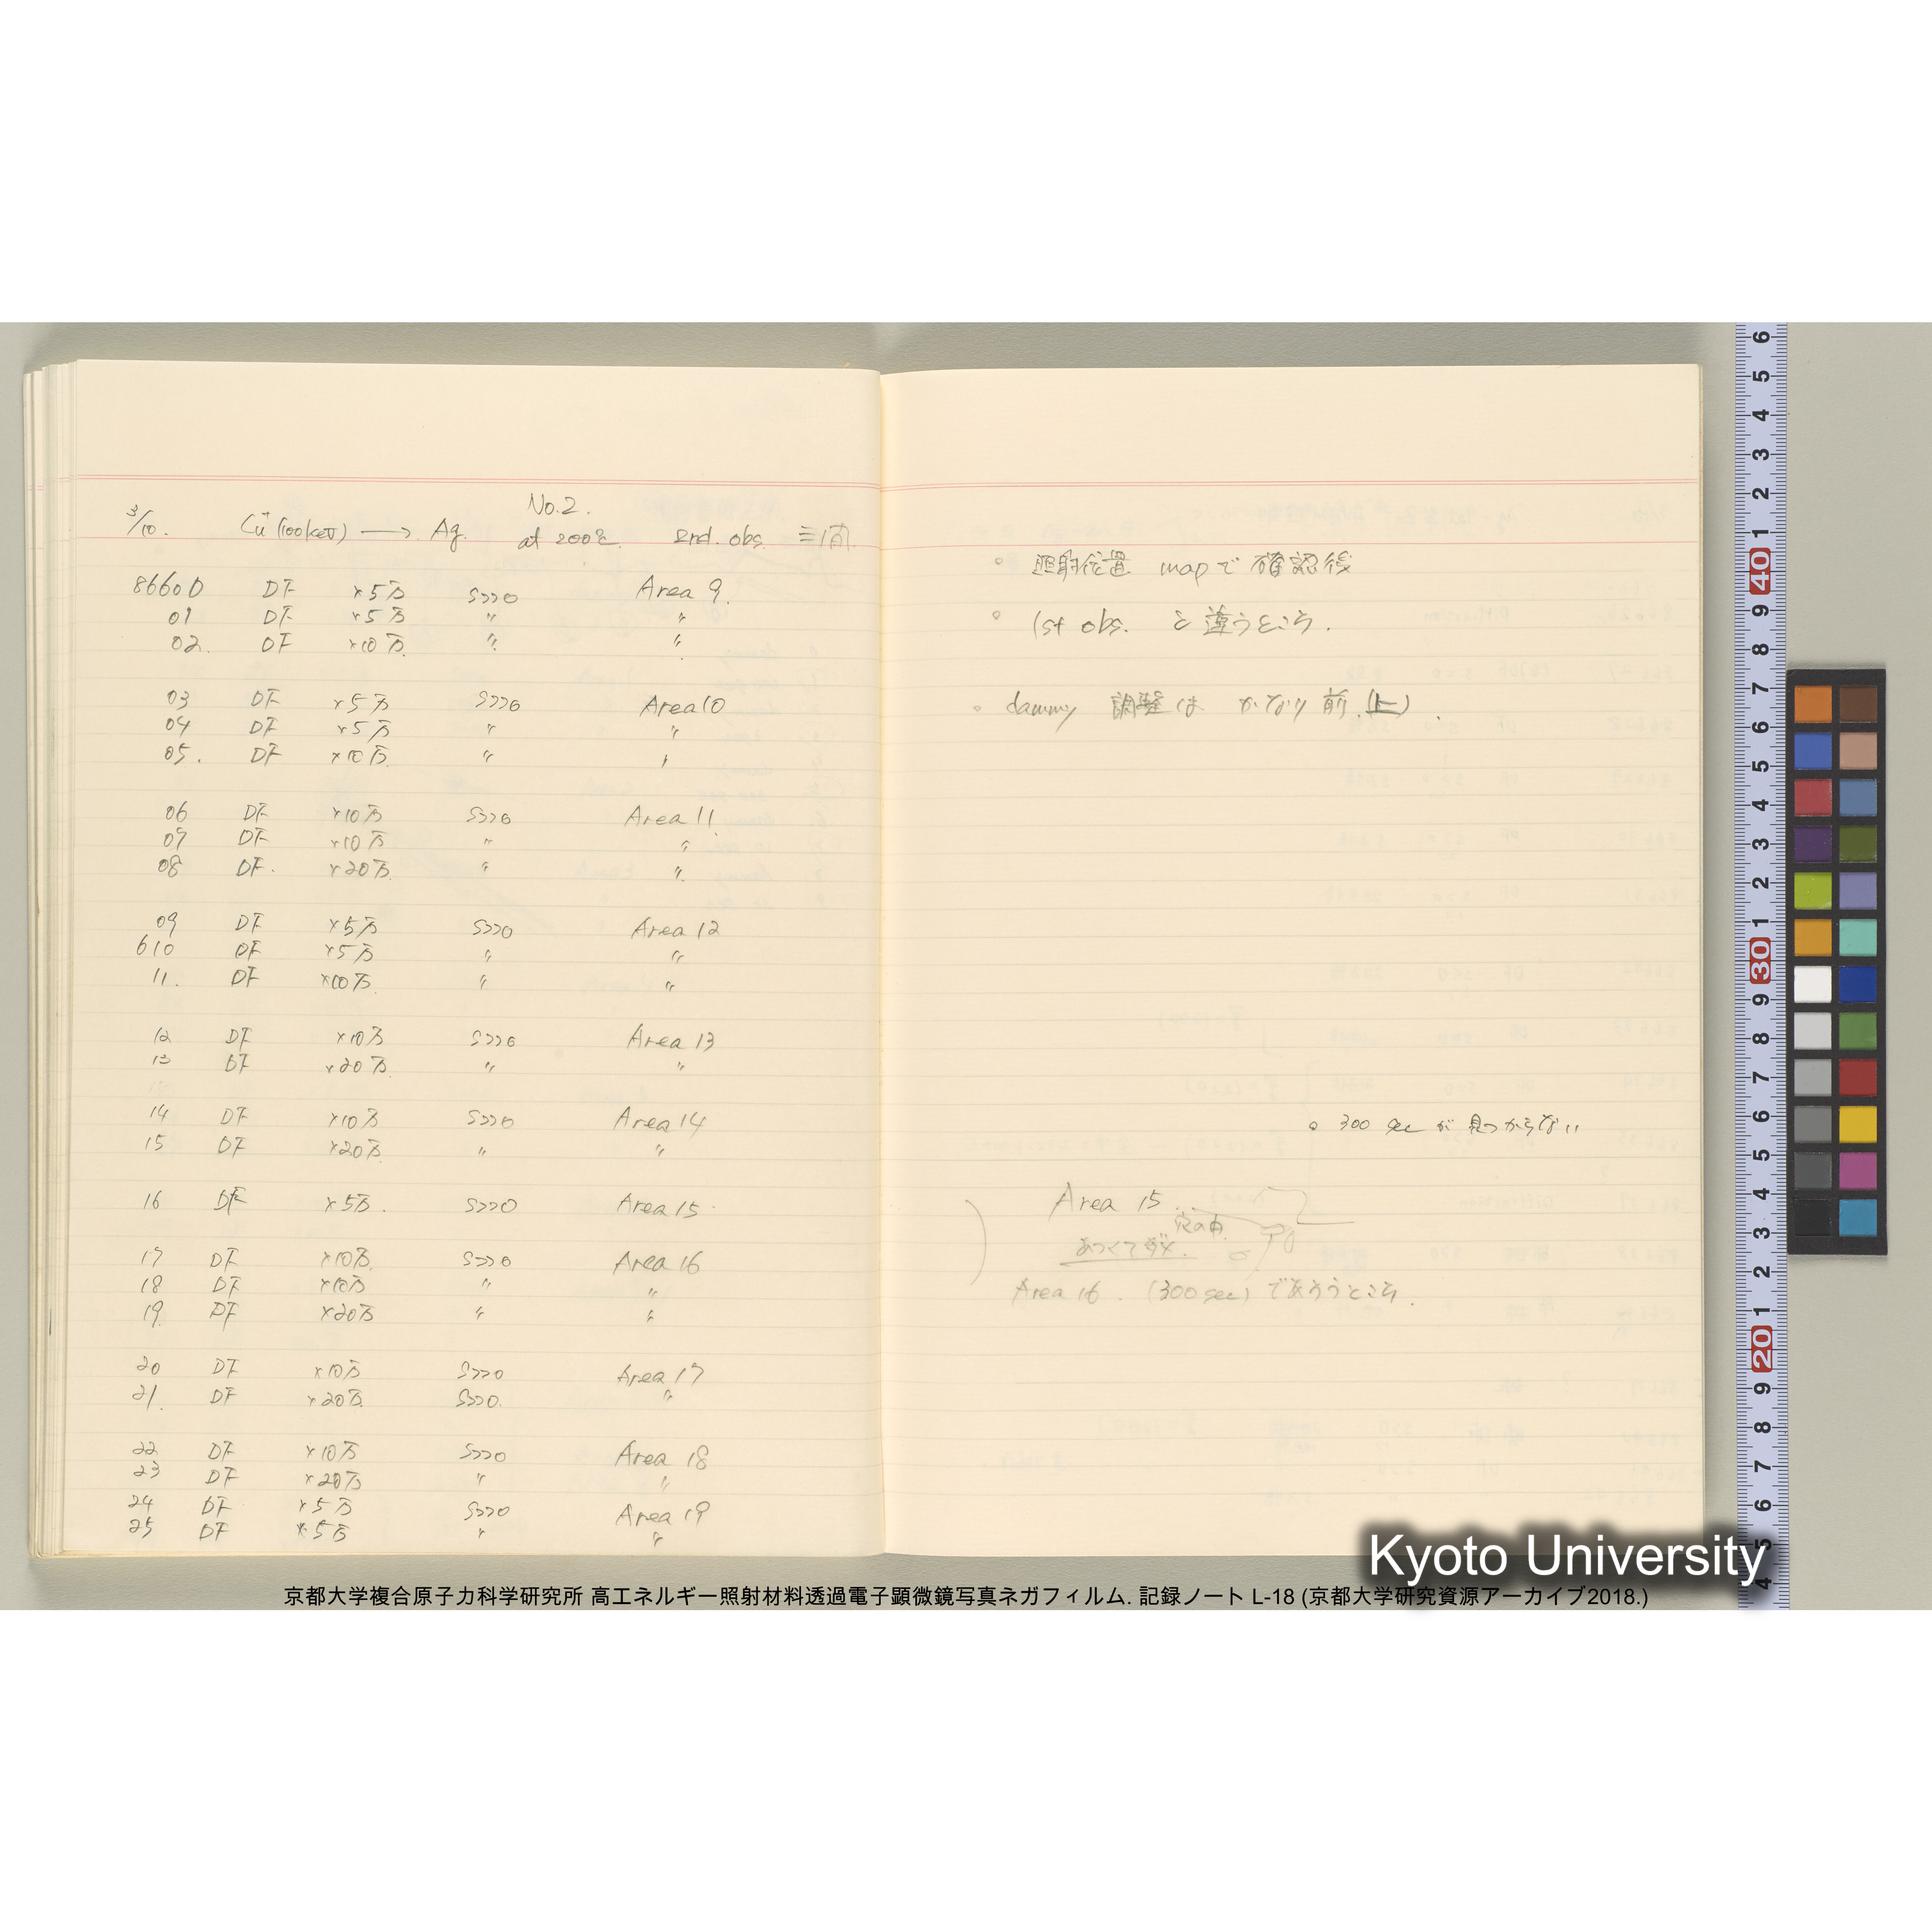 3/10. Cu (100keV) → Ag. No.2. at 200℃. 2nd. obs.
86600 DF ×5万 S>>0 Area 9.
01 DF ×5万 〃 〃
02. DF ×10万. 〃 〃
03 DF ×5万 S>>0 Area 10
04 DF ×5万 〃 〃
05. DF ×10万. 〃 〃
06 DF ×10万 S>>0 Area 11
07 DF ×10万 〃 〃
08 DF. ×20万. 〃 〃
09 DF ×5万 S>>0 Area 12
610 DF ×5万 〃 〃
11. DF ×10万. 〃 〃
12 DF ×10万 S>>0 Area 13
13 DF ×20万. 〃 〃
14 DF ×10万 S>>0 Area 14
15 DF ×20万 〃 〃
16 DF ×5万. S>>0 Area 15
17 DF ×10万. S>>0 Area 16
18 DF ×10万 〃 〃
19. DF ×20万 〃 〃
20 DF ×10万 S>>0 Area 17
21. DF ×20万 S>>0. 〃
22 DF ×10万 S>>0 Area 18
23 DF ×20万 〃 〃
24 DF ×5万 S>>0 Area 19
25 DF ×5万 〃 〃
○ 照射位置 mapで確認後
○ 1st obs. と違うところ.
○ dammy 調整は かなり前.(上).
○ 300 sec が見つからない
Area 15
あつくてダメ.
Area 16. (300sec) であろうところ.
6
5
4
3
2
1
40
9
8
7
6
5
4
3
2
1
30
9
8
7
6
5
4
3
2
1
20
9
8
7
6
5
4
Kyoto University
京都大学複合原子力科学研究所 高エネルギー照射材料透過電子顕微鏡写真ネガフィルム. 記録ノート L-18 (京都大学研究資源アーカイブ2018.)